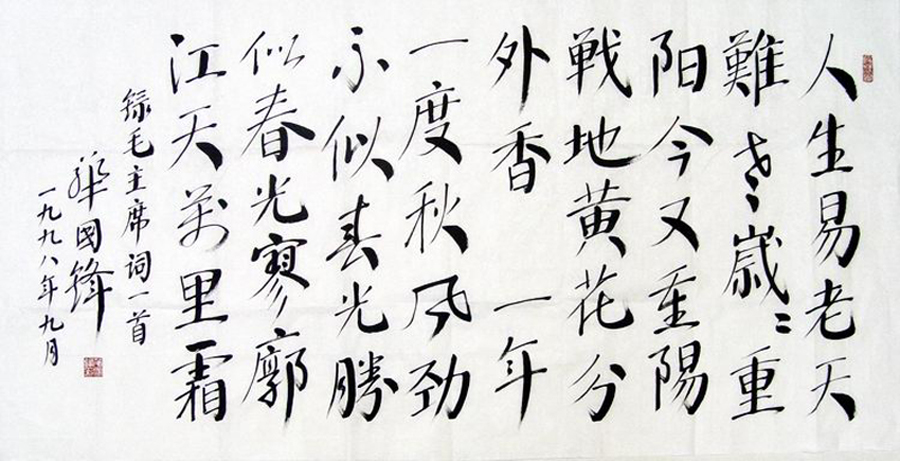 人生易老天
難老歲〻重
阳今又重陽
戦地黄花分
外香 一年
一度秋风劲
不似春光勝
似春光寥廓
江天萬里霜
録毛主席词一首
華國鋒
一九九八年九月